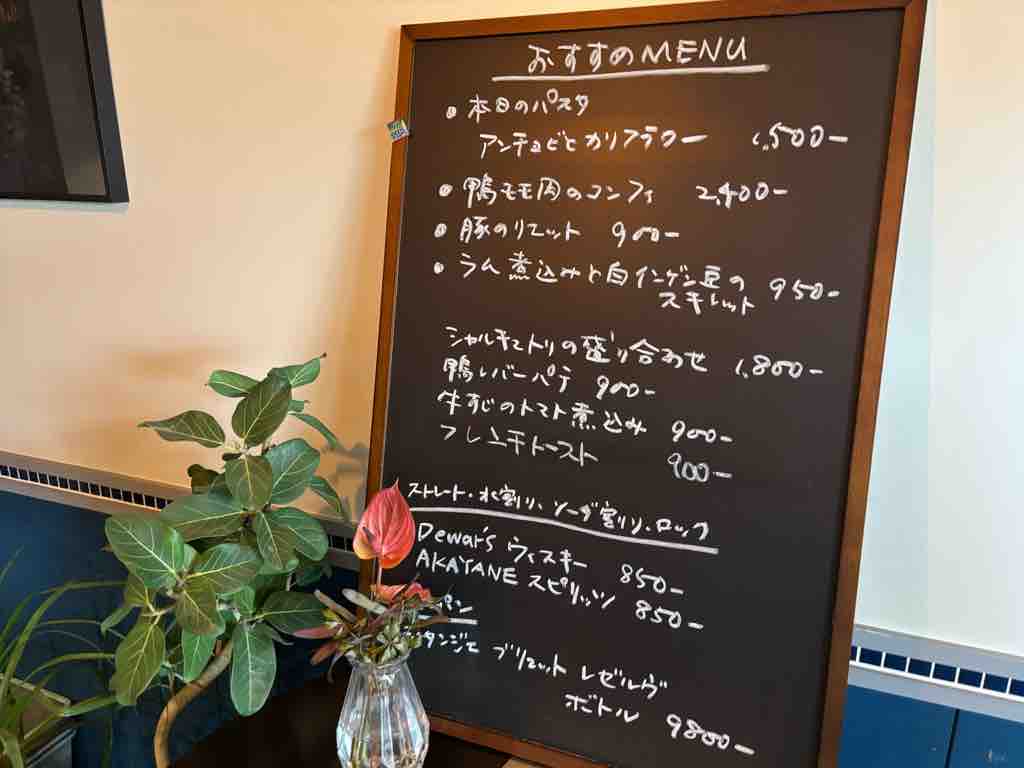 おすすめMENU
• 本日のパスタ
アンチョビとカリフラワー 1,500-
• 鴨モモ肉のコンフィ 2,400-
• 豚のリエット 900-
• ラム煮込みと白インゲン豆の 950-
スキレット
シャルキュトリの盛り合わせ 1,800-
鴨レバーパテ 900-
牛すじのトマト煮込み 900-
フレンチトースト 900-
ストレート・水割り、ソーダ割り、ロック
Dewar's ウィスキー 850-
AKAYANE スピリッツ 850-
パン
タンジェ ブリュット レゼルヴ
ボトル 9800-